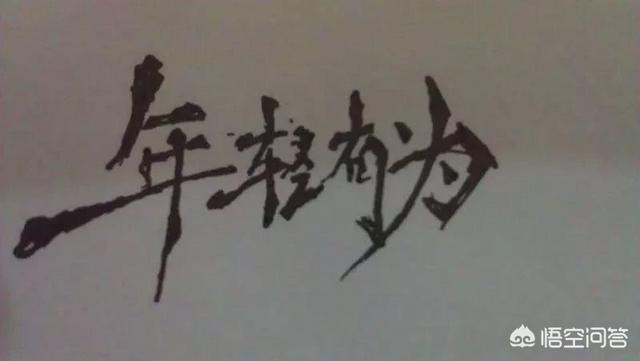 年轻有为
悟空问答